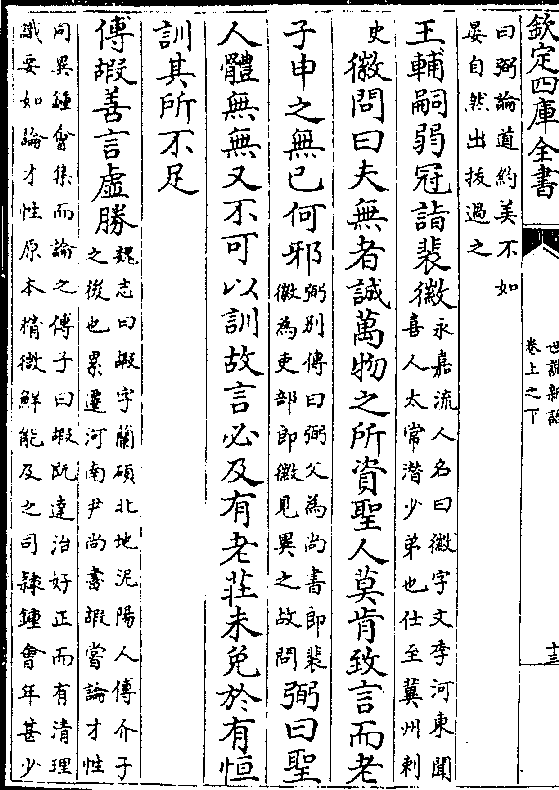 欽定四庫全書
世說新語
卷上之下
十三
曰弼論道約美不如
晏自然出拔過之
王輔嗣弱冠詣裴徽
永嘉流人名曰徽字文季河東聞
喜人太常潛少弟也仕至冀州刺
史
徽問曰夫無者誠萬物之所資聖人莫肯致言而老
子申之無已何邪
弼別傳曰弼父為尚書郎裴
徽為吏部郎徽見異之故問
弼曰聖
人體無無又不可以訓故言必及有老莊未免於有恒
訓其所不足
傅嘏善言虛勝
魏志曰嘏字蘭碩北地泥陽人傅介子
之後也累遷河南尹尚書嘏嘗論才性
同異鍾會集而論之傅子曰嘏既達治好正而有清理
識要如論才性原本精微鮮能及之司隸鍾會年甚少